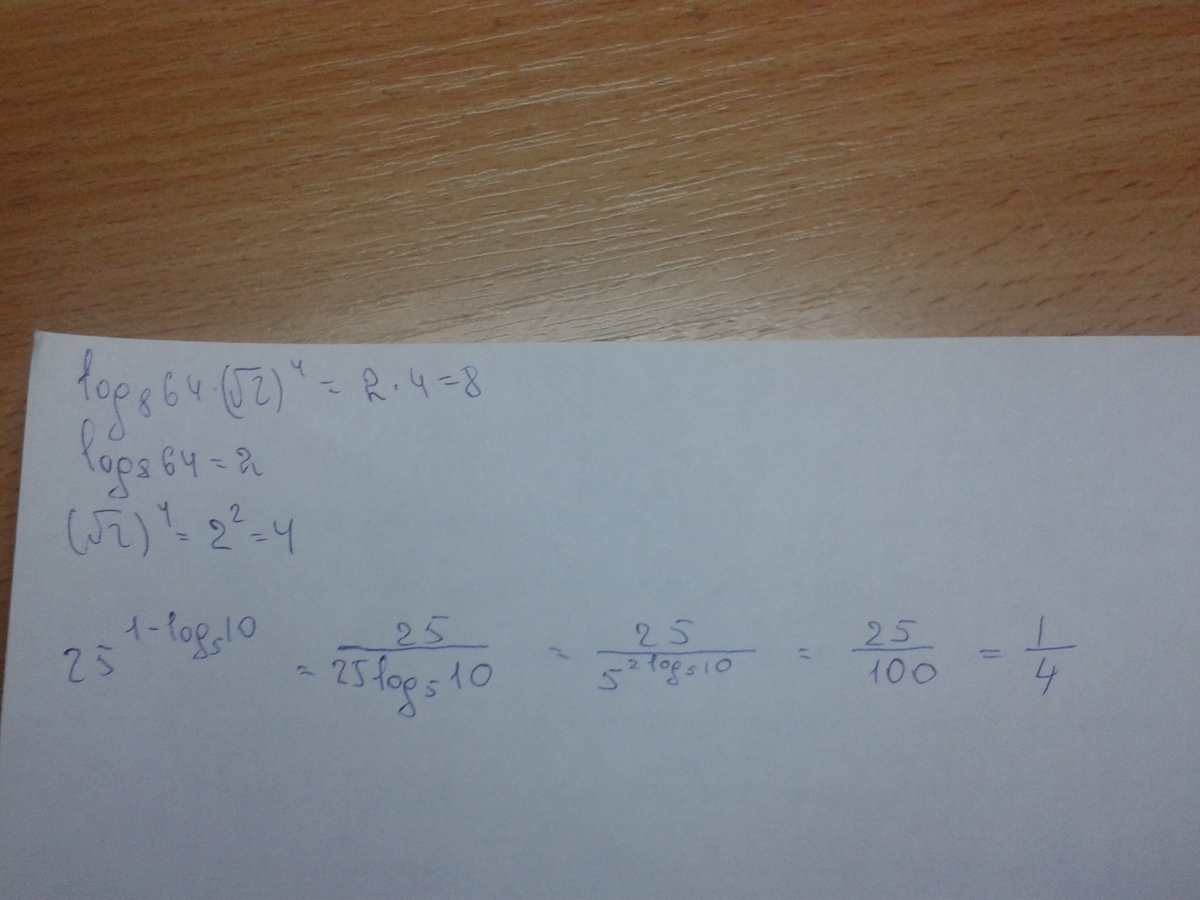 log₈64·(√2)⁴ = 2·4=8
log₈64=2
(√2)⁴= 2²=4
25^(1-log₅10) = 25/(25log₅10) = 25/(5^(2log₅10)) = 25/100 = 1/4